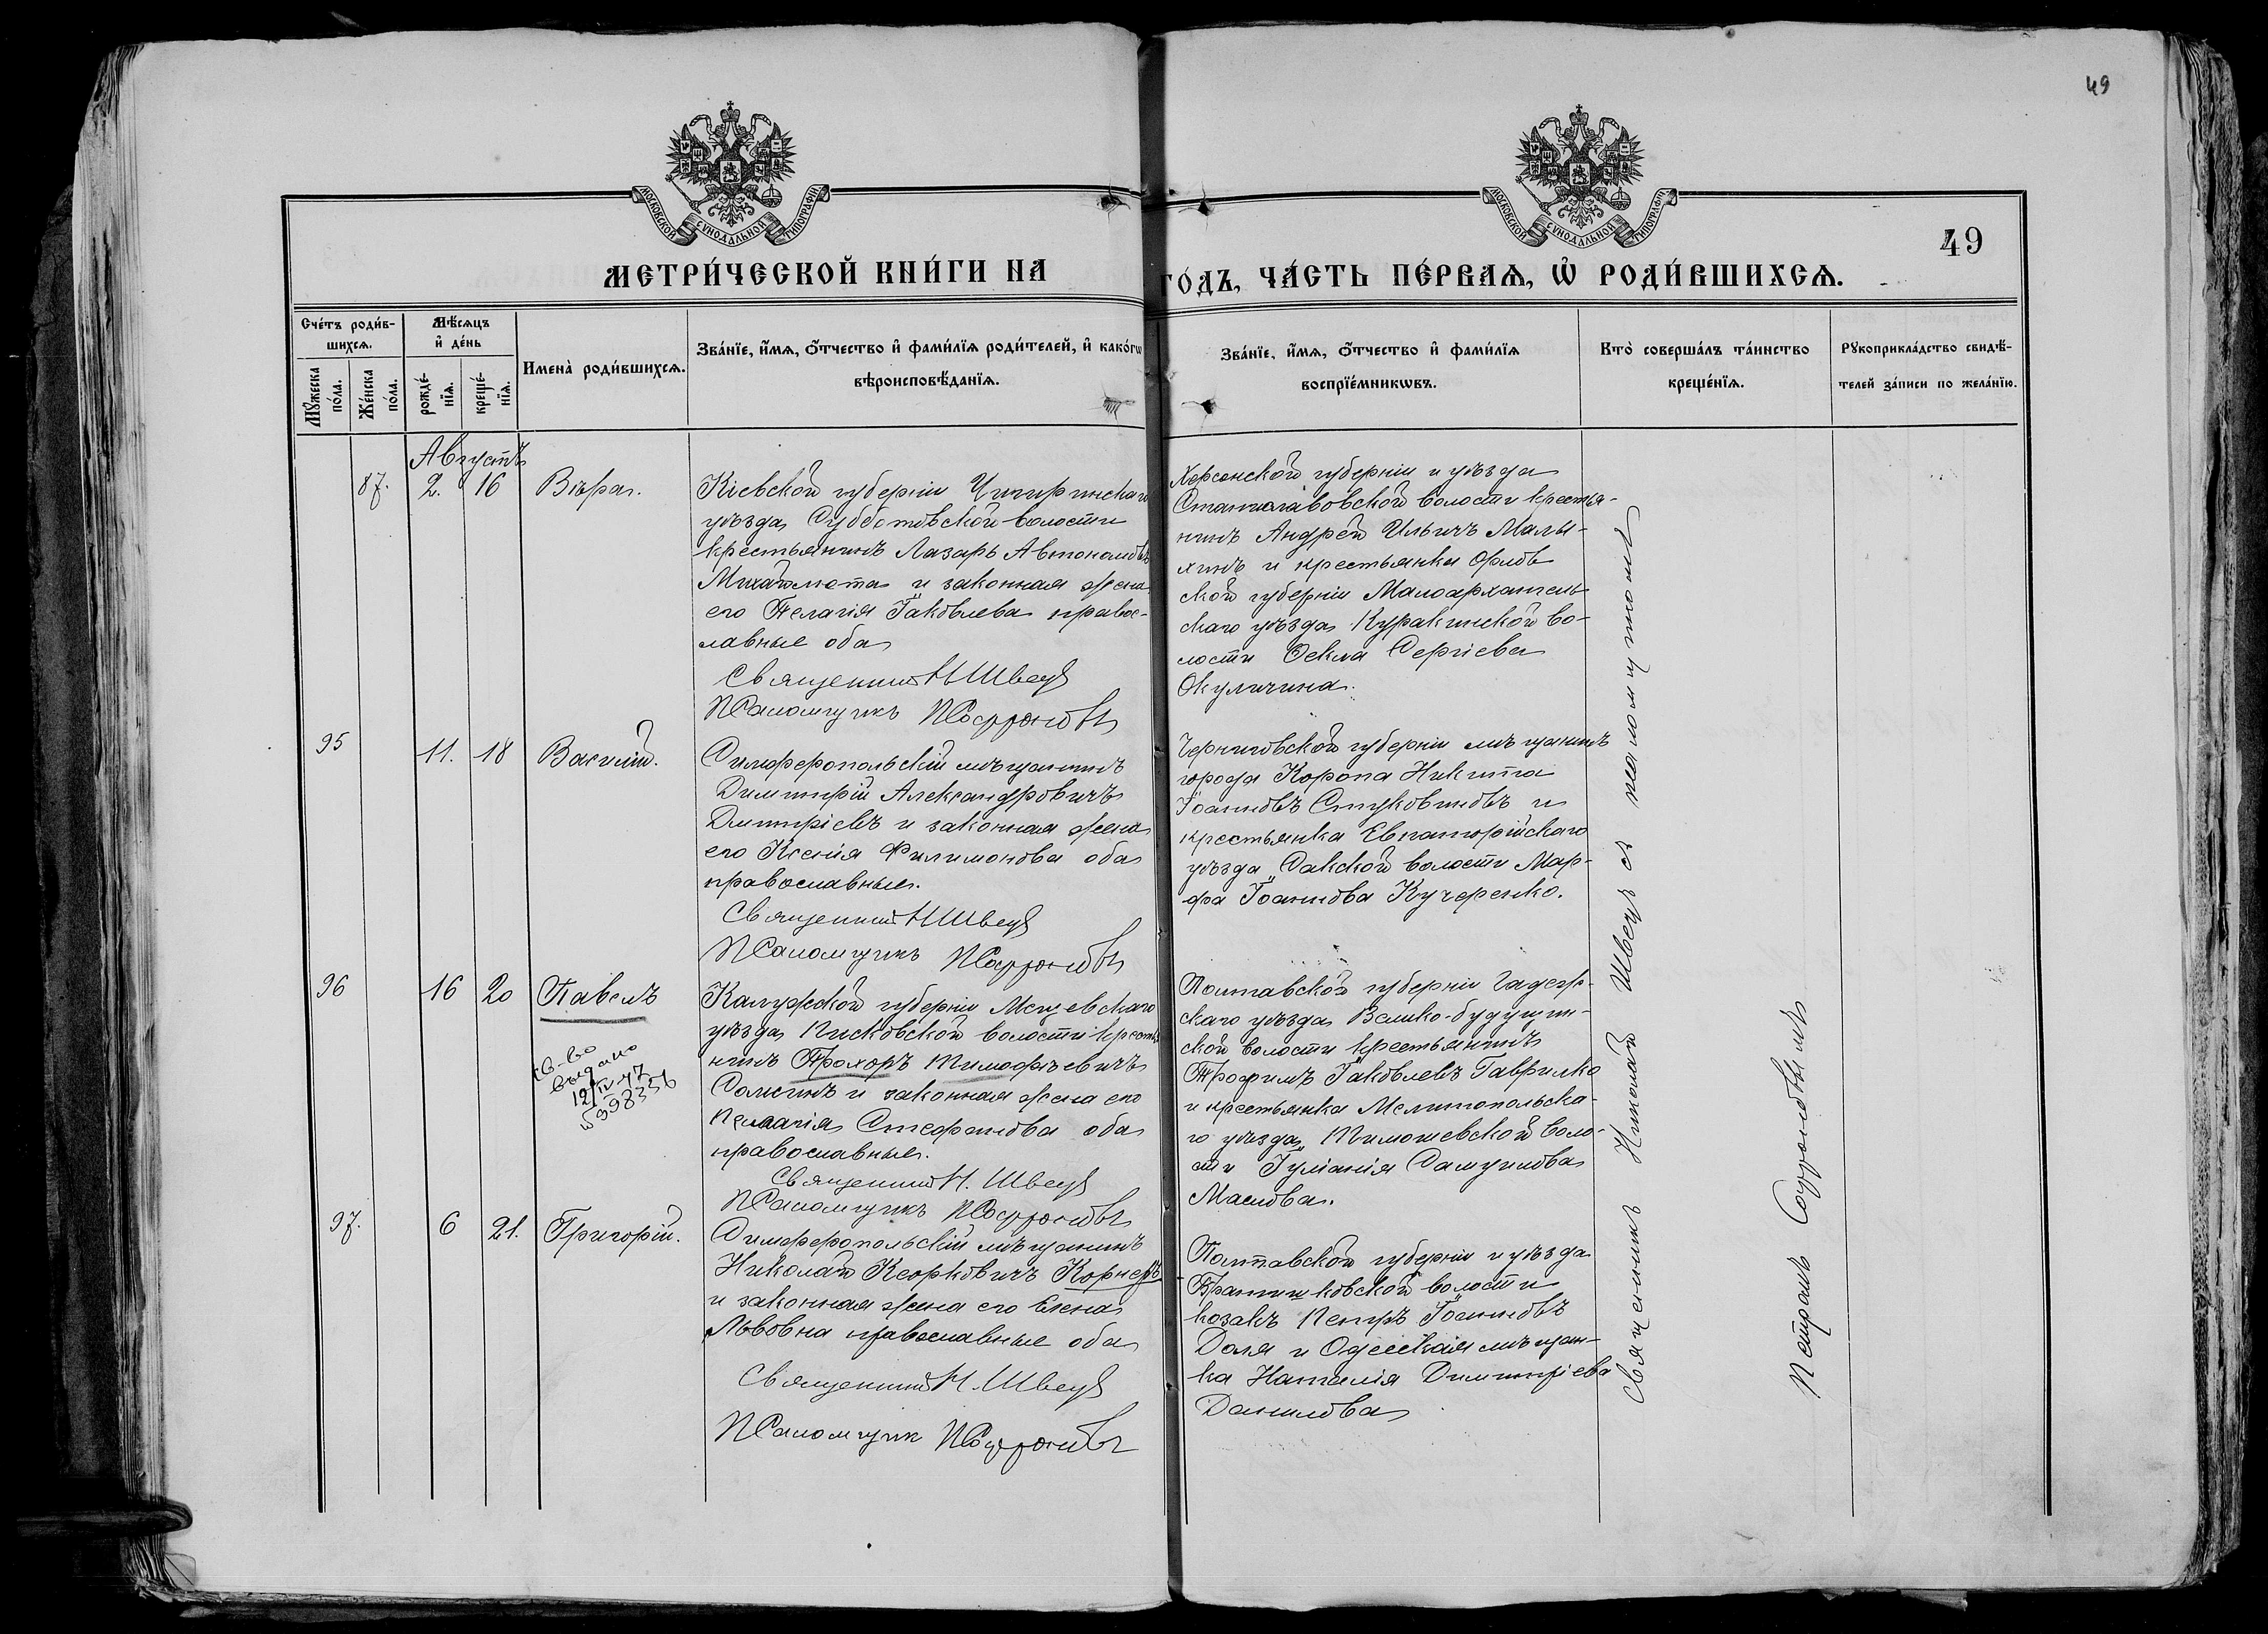 49
МОСКОВСКОЙ СѴНОДАЛЬНОЙ ТИПОГРАФІИ
МОСКОВСКОЙ СѴНОДАЛЬНОЙ ТИПОГРАФІИ
49
МЕТРИ́ЧЕСКОЙ КНИ́ГИ НА ГО́ДЪ, ЧА́СТЬ ПЕ́РВАѦ, Ѡ҆ РОДИ́ВШИХСѦ.
Сче́тъ роди́в-
шихсѧ.
Мꙋ́жеска
по́ла.
Же́нска
по́ла.
Мѣ́сѧцъ
и҆ де́нь
рожде́-
нїѧ.
креще́-
нїѧ.
Имена̀ роди́вшихсѧ.
Зва́нїе, и҆́мѧ, ѻ҆́тчество и҆ фами́лїѧ роди́телей, и҆ како́гѡ
вѣроисповѣ́данїѧ.
Зва́нїе, и҆́мѧ, ѻ҆́тчество и҆ фами́лїѧ
воспрїе́мникѡвъ.
Кто̀ соверша́лъ та́инство
креще́нїѧ.
Рꙋкоприкла́дство свидѣ́-
телей за́писи по жела́нїю.
Августъ
87. 2. 16 Вѣра.
Кіевской губерніи Чигиринскаго
уѣзда Субботовской волости
крестьянинъ Лазарь Автономовъ
Михайлюта и законная жена
его Пелагія Іаковлева правос-
лавные оба
Священникъ Н Швецъ
Псаломщикъ П Софроновъ
Херсонской губерніи и уѣзда
Станиславовской волости крестья-
нинъ Андрей Ильичъ Малы-
хинъ и крестьянка Орлов
ской губерніи Малоархангель
скаго уѣзда Куракинской во-
лости Ѳекла Сергіева
Окуличина.
95 11. 18 Василій.
Симферопольскій мѣщанинъ
Димитрій Александровичъ
Дмитріевъ и законная жена
его Ксенія Филимонова оба
православные.
Священникъ Н Швецъ
Псаломщикъ П Софроновъ
Черниговской губерніи мѣщанинъ
города Коропа Никита
Іоанновъ Стуковиновъ и
крестьянка Евпаторійскаго
уѣзда Сакской волости Мар-
фа Іоаннова Кучеренко.
96 16 20 Павелъ
св-во
выдано
12/IV-47
Калужской губерніи Мещевскаго
уѣзда Писковской волости крестья
нинъ Прохоръ Тимофѣевичъ
Сомкинъ и законная жена его
Пелагія Стефанова оба
православные.
Священникъ Н. Швецъ
Псаломщикъ П Софроновъ
Полтавской губерніи Гадяч-
скаго уѣзда Велико-будищин-
ской волости крестьянинъ
Трофимъ Іаковлевъ Гаврилко
и крестьянка Мелитопольска-
го уѣзда, Тимошевской воло-
сти Іуліанія Самуилова
Маслова.
97. 6 21. Григорій.
Симферопольскій мѣщанинъ
Николай Кеорковичъ Корнеръ
и законная жена его Елена
Львовна православные оба
Священникъ Н. Швецъ
Псаломщик П Софроновъ
Полтавской губерніи и уѣзда
Братешковской волости
козакъ Петръ Іоанновъ
Доля и Одесская мѣщан-
ка Наталія Димитріева
Данилова
Священникъ Николай Швецъ съ псаломщикомъ
Петромъ Софроновымъ